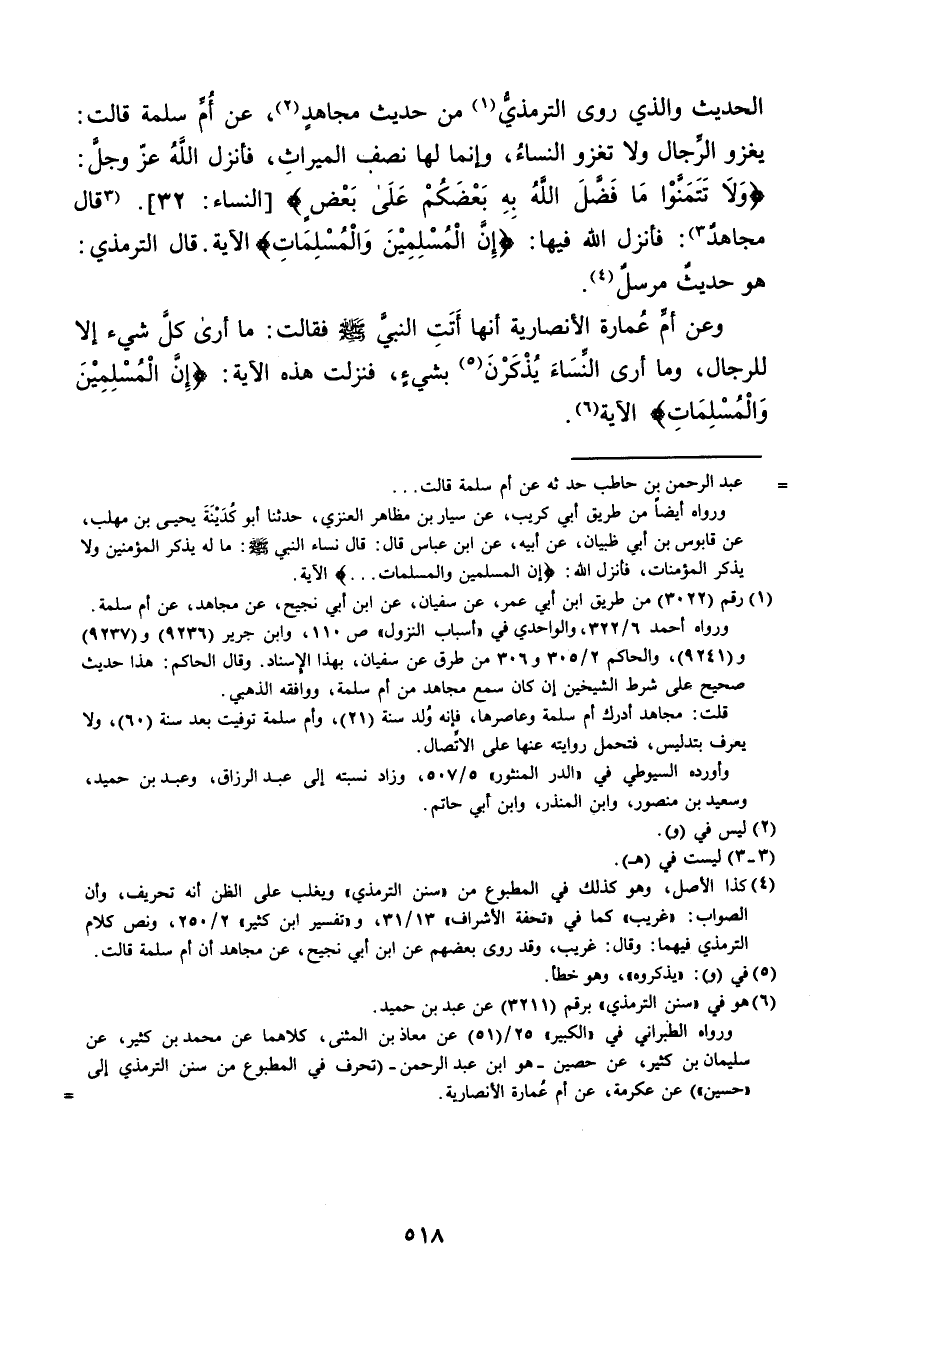 الحديث والذي روى الترمذيُّ(١) من حديث مجاهدٍ(٢)، عن أُمِّ سلمة قالت:
يغزو الرِّجال ولا تغزو النساءُ، وإنما لها نصف الميراثِ، فأنزل اللَّهُ عزّ وجلَّ:
﴿وَلَا تَتَمَنَّوْا مَا فَضَّلَ اللَّهُ بِهِ بَعْضَكُمْ عَلَىٰ بَعْضٍ﴾ [النساء: ٣٢]. (٣قال
مجاهدٌ٣): فأنزل الله فيها: ﴿إِنَّ الْمُسْلِمِيْنَ وَالْمُسْلِمَاتِ﴾ الآية. قال الترمذي:
هو حديثٌ مرسلٌ(٤).
وعن أمِّ عُمارة الأنصارية أنها أَتَتِ النبيَّ ﷺ فقالت: ما أرىٰ كلَّ شيء إلا
للرجال، وما أرى النِّسَاءَ يُذْكَرْنَ(٥) بشيءٍ، فنزلت هذه الآية: ﴿إِنَّ الْمُسْلِمِيْنَ
وَالْمُسْلِمَاتِ﴾ الآية(٦).
= عبد الرحمن بن حاطب حد ثه عن أم سلمة قالت...
ورواه أيضاً من طريق أبي كريب، عن سيار بن مظاهر العنزي، حدثنا أبو كُدَيْنَةَ يحيى بن مهلب،
عن قابوس بن أبي ظبيان، عن أبيه، عن ابن عباس قال: قال نساء النبي ﷺ: ما له يذكر المؤمنين ولا
يذكر المؤمنات، فأنزل الله: ﴿إن المسلمين والمسلمات...﴾ الآية.
(١) رقم (٣٠٢٢) من طريق ابن أبي عمر، عن سفيان، عن ابن أبي نجيح، عن مجاهد، عن أم سلمة.
ورواه أحمد ٣٢٢/٦، والواحدي في «أسباب النزول» ص ١١٠، وابن جرير (٩٢٣٦) و(٩٢٣٧)
و(٩٢٤١)، والحاكم ٣٠٥/٢ و٣٠٦ من طرق عن سفيان، بهذا الإسناد. وقال الحاكم: هذا حديث
صحيح على شرط الشيخين إن كان سمع مجاهد من أم سلمة، ووافقه الذهبي.
قلت: مجاهد أدرك أم سلمة وعاصرها، فإنه وُلد سنة (٢١)، وأم سلمة توفيت بعد سنة (٦٠)، ولا
يعرف بتدليس، فتحمل روايته عنها على الاتِّصال.
وأورده السيوطي في «الدر المنثور» ٥٠٧/٥، وزاد نسبته إلى عبد الرزاق، وعبد بن حميد،
وسعيد بن منصور، وابن المنذر، وابن أبي حاتم.
(٢) ليس في (و).
(٣-٣) ليست في (هـ).
(٤) كذا الأصل، وهو كذلك في المطبوع من «سنن الترمذي» ويغلب على الظن أنه تحريف، وأن
الصواب: «غريب» كما في «تحفة الأشراف» ٣١/١٣، و«تفسير ابن كثير» ٢٥٠/٢، ونص كلام
الترمذي فيهما: وقال: غريب، وقد روى بعضهم عن ابن أبي نجيح، عن مجاهد أن أم سلمة قالت.
(٥) في (و): «يذكروه»، وهو خطأ.
(٦) هو في «سنن الترمذي» برقم (٣٢١١) عن عبد بن حميد.
ورواه الطبراني في «الكبير» ٢٥/(٥١) عن معاذ بن المثنى، كلاهما عن محمد بن كثير، عن
سليمان بن كثير، عن حصين -هو ابن عبد الرحمن- (تحرف في المطبوع من سنن الترمذي إلى
«حسين») عن عكرمة، عن أم عُمارة الأنصارية. =
٥١٨